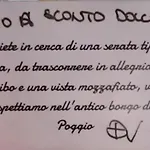 O A SCONTO DOCC
iete in cerca di una serata ti
a, da trascorrere in allegri
ibo e una vista mozzafiato, v
spettiamo nell'antico borgo d
Poggio